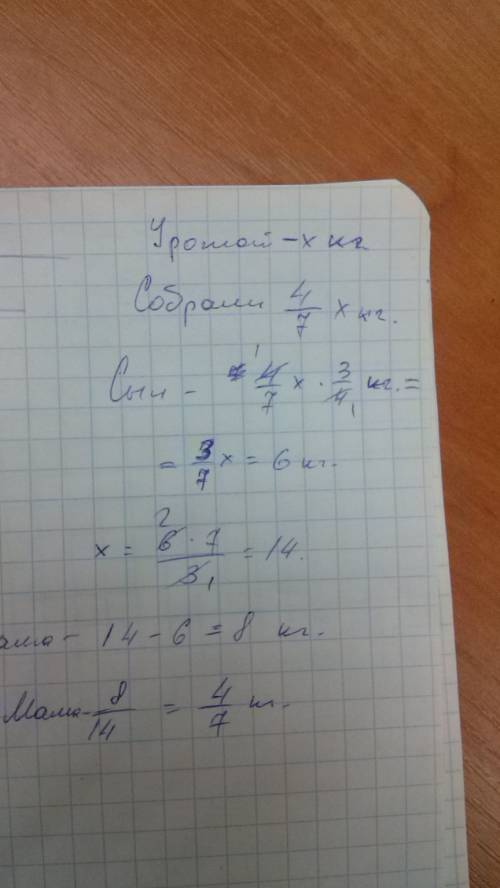 Урожай - x кг
Собрали 4/7 x кг.
Сын - 4/7 x · 3/4 кг. =
= 3/7 x = 6 кг.
x = 6 · 7 / 3 = 14.
ама - 14 - 6 = 8 кг.
Мама - 8/14 = 4/7 кг.